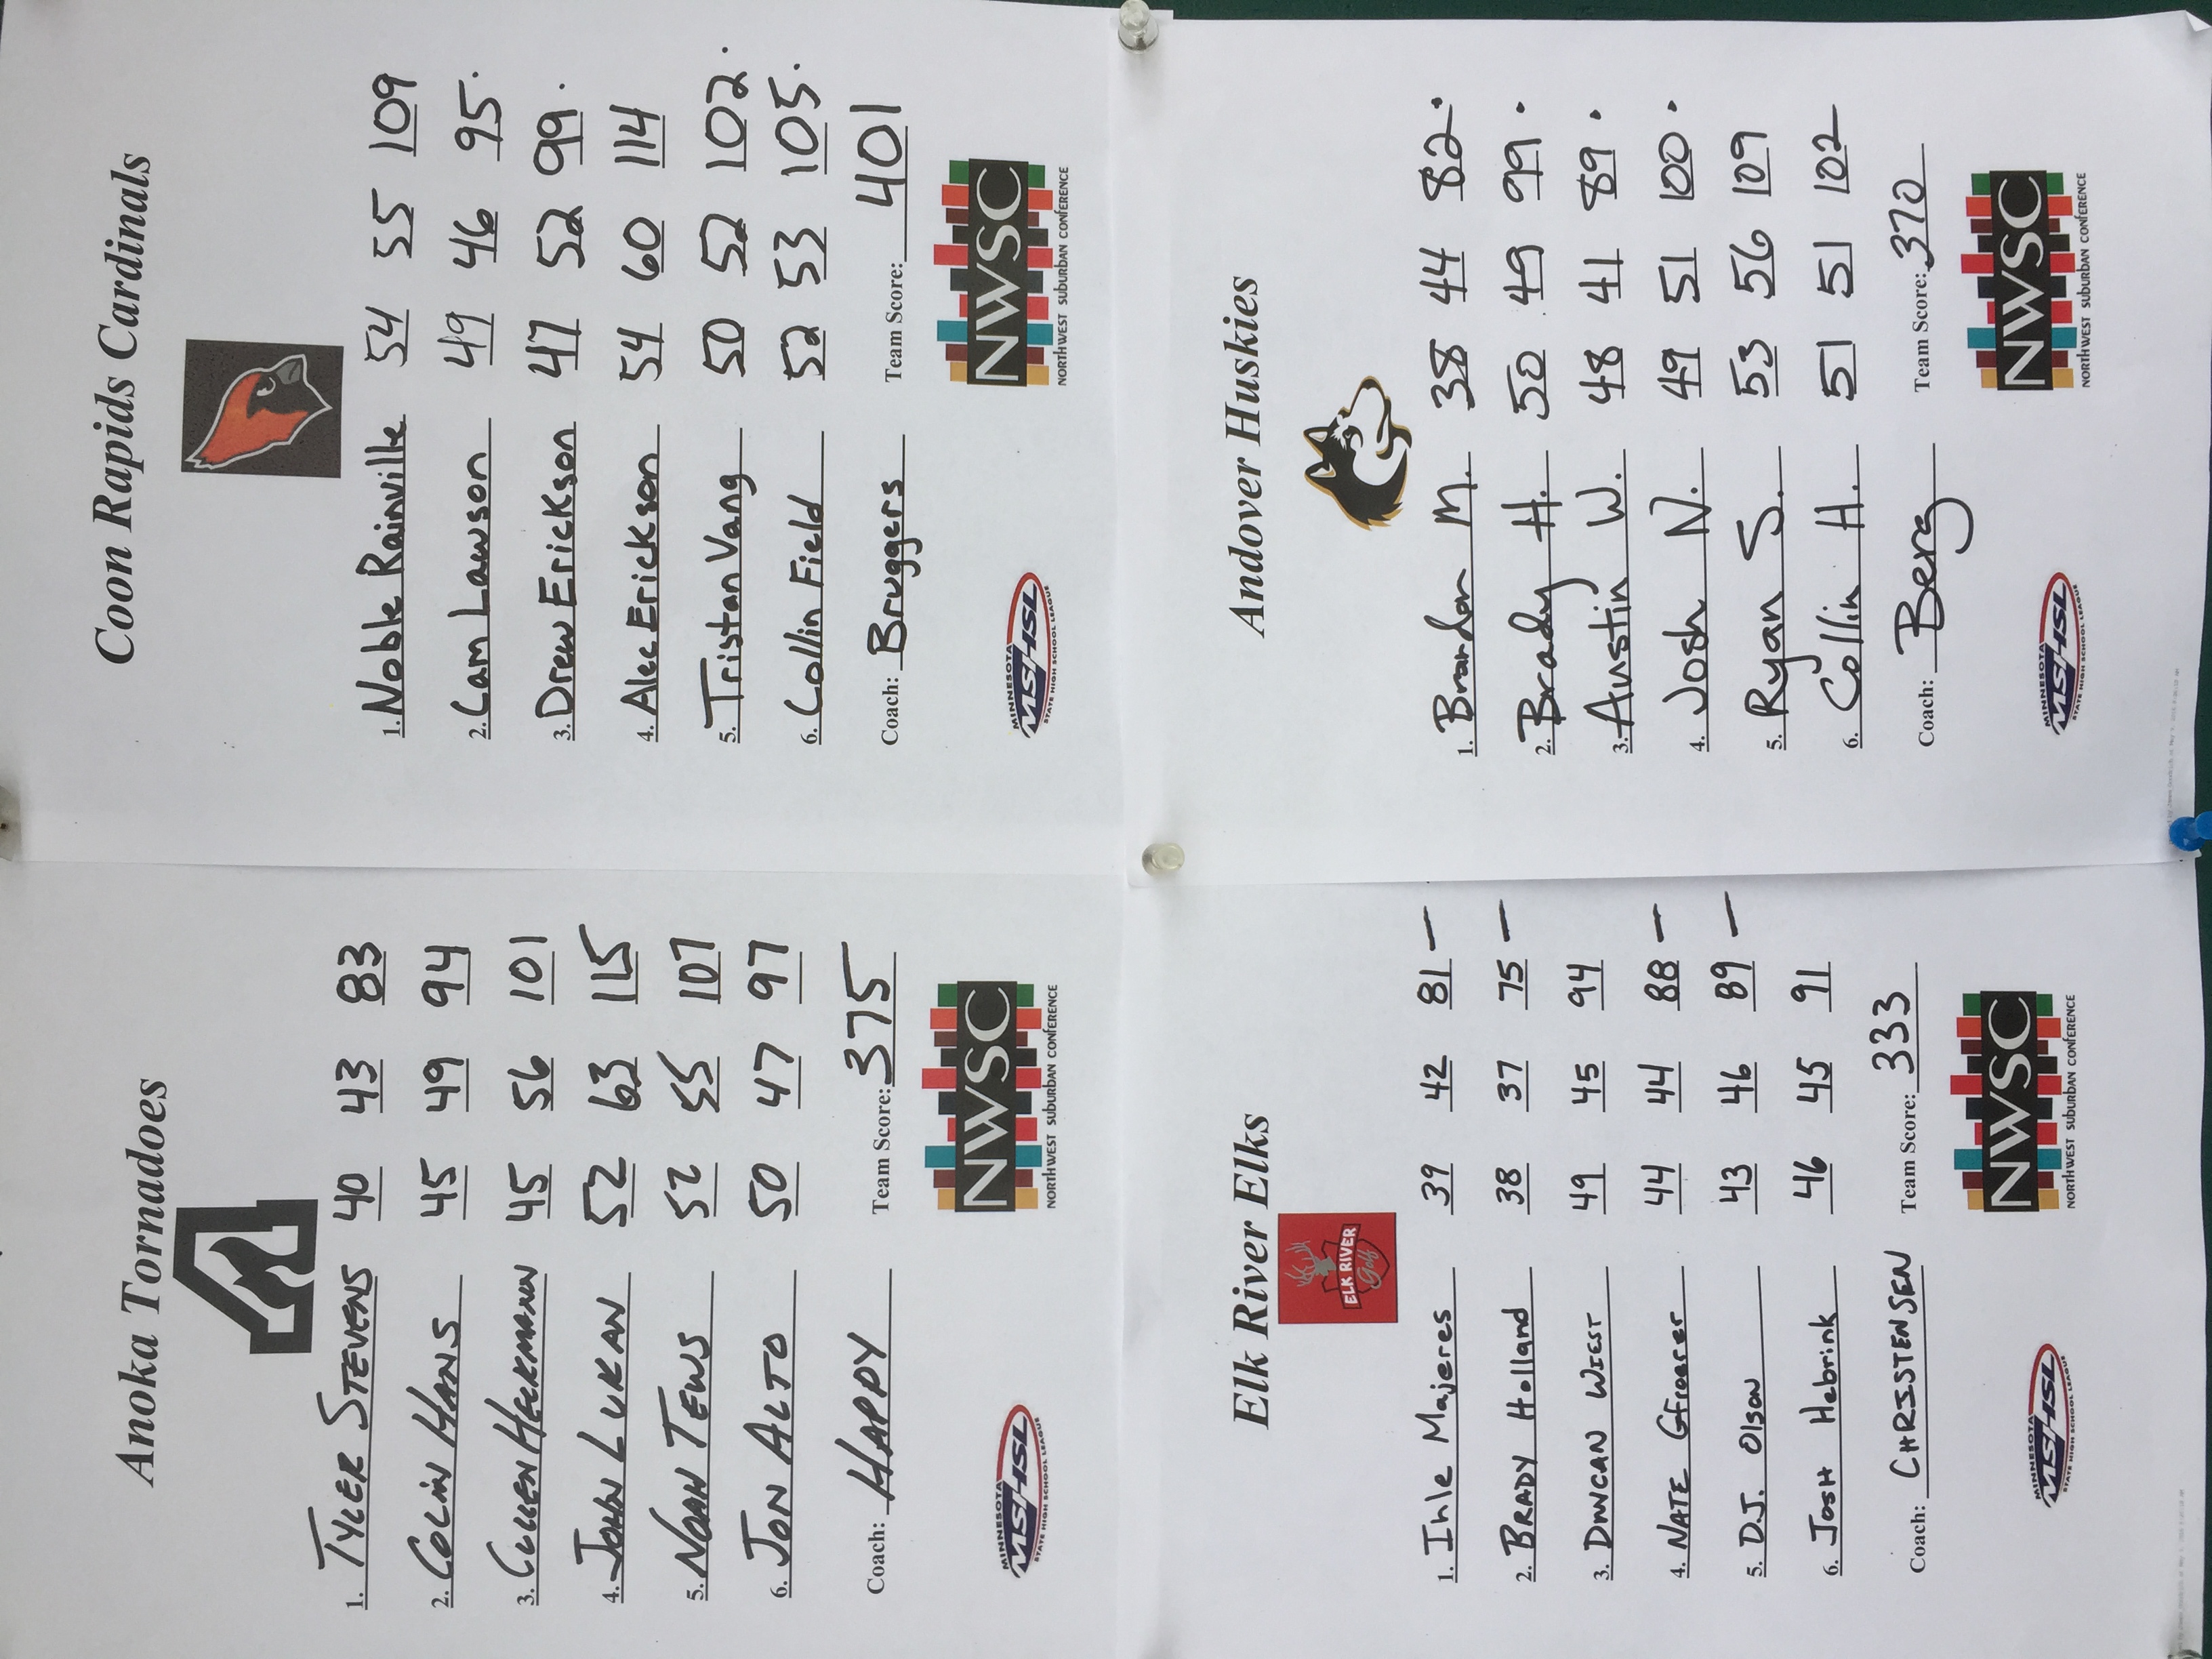 Anoka Tornadoes
1. TYLER STEVENS 40 43 83
2. COLIN HANS 45 49 94
3. CULLEN HECKMANN 45 56 101
4. JOHN LUKAN 52 63 115
5. NOAH TEWS 52 55 107
6. JON ALTO 50 47 97
Coach: HAPPY Team Score: 375
MINNESOTA
MSHSL
STATE HIGH SCHOOL LEAGUE
NWSC
NORTHWEST SUBURBAN CONFERENCE
Coon Rapids Cardinals
1. Noble Rainville 54 55 109
2. Cam Lawson 49 46 95.
3. Drew Erickson 47 52 99.
4. Alec Erickson 54 60 114
5. Tristan Vang 50 52 102.
6. Collin Field 52 53 105.
Coach: Bruggers Team Score: 401
MINNESOTA
MSHSL
STATE HIGH SCHOOL LEAGUE
NWSC
NORTHWEST SUBURBAN CONFERENCE
Elk River Elks
ELK RIVER
Golf
1. Ihle Majeres 39 42 81 —
2. BRADY Holland 38 37 75 —
3. DUNCAN WIEST 49 45 94
4. NATE Gfroerer 44 44 88 —
5. D.J. Olson 43 46 89 —
6. JOSH Hebrink 46 45 91
Coach: CHRISTENSEN Team Score: 333
MINNESOTA
MSHSL
STATE HIGH SCHOOL LEAGUE
NWSC
NORTHWEST SUBURBAN CONFERENCE
Andover Huskies
1. Brandon M. 38 44 82.
2. Brady H. 50 49 99.
3. Austin W. 48 41 89.
4. Josh N. 49 51 100.
5. Ryan S. 53 56 109
6. Collin H. 51 51 102
Coach: Berg Team Score: 370
MINNESOTA
MSHSL
STATE HIGH SCHOOL LEAGUE
NWSC
NORTHWEST SUBURBAN CONFERENCE